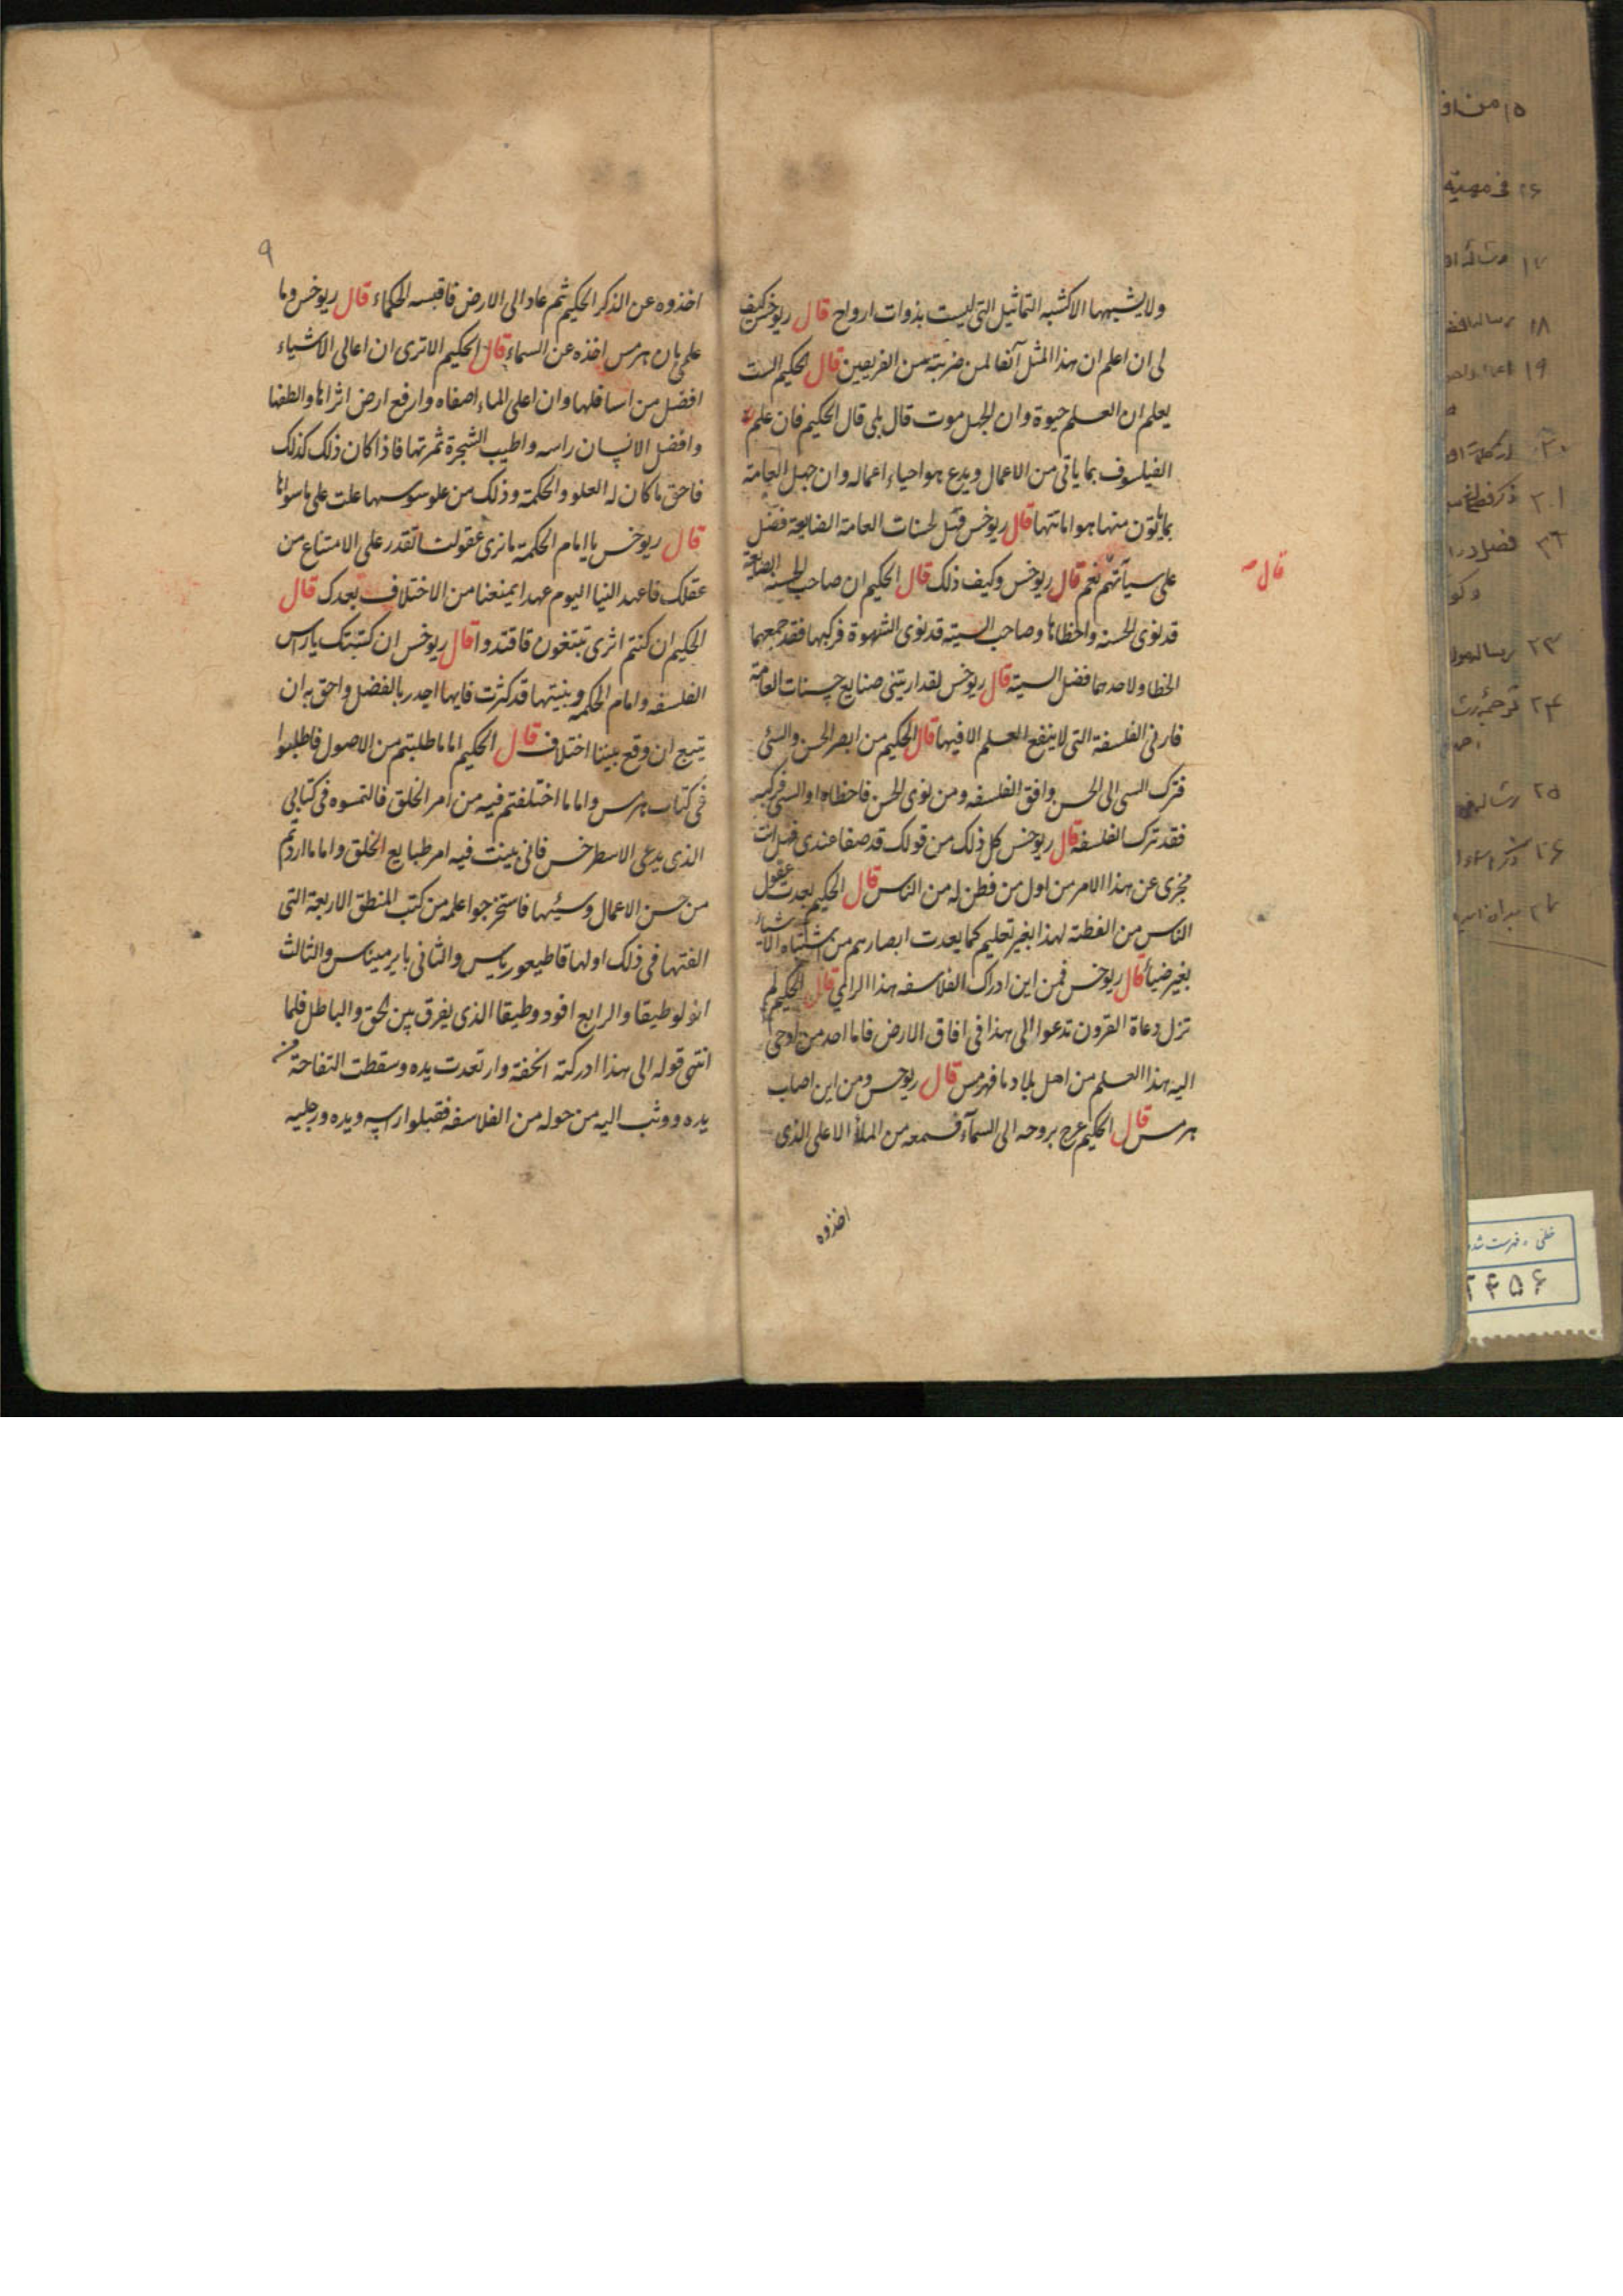 ولا يشبهها الا كشبه التماثيل التى ليست بذوات ارواح قال ريوخس كيف
لى ان اعلم ان هذا المثل آنفا لمن ضربته من الفريقين قال الحكيم الست
يعلم ان العلم حيوة وان الجهل موت قال بلى قال الحكيم فان علم
الفيلسوف بما ياتى من الاعمال ويدع هو احياء اعماله وان جهل العامة
بما ياتون منها هو اماتتها قال ريوخس فهل لحسنات العامة الضايعة فضل
على سيآتهم نعم قال ريوخس وكيف ذلك قال الحكيم ان صاحب الحسنة الضايعة
قال
قد نوى الحسنه واخطاها وصاحب السيئه قد نوى الشهوة فركبها فقد جمعهما
الخطا ولاحدهما فضل السيئه قال ريوخس لقد اريتنى ضايع حسنات العامة
فارنى الفلسفة التى لا ينفع العلم الا فيها قال الحكيم من ابصر الحسن والسئ
فترك السى الى الحسن وافق الفلسفه ومن نوى الحسن فاخطاه او السى فركبه
فقد ترك الفلسفه قال ريوخس كل ذلك من قولك قد صفا عندى فهل انت
مخبرى عن هذا الامر من اول من فطن له من الناس قال الحكيم بعدت عقول
الناس من الفطنة لهذا بغير تعليم كما بعدت ابصارهم من اشتباه الاشياء
بغير ضياء قال ريوخس فمن اين ادراك الفلاسفه هذا الراى قال الحكيم لم
تزل دعاة القرون تدعوا الى هذا فى افاق الارض فاما احد من اوحى
اليه هذا العلم من اهل بلادنا فهرمس قال ريوخس ومن اين اصاب
هرمس قال الحكيم عرج بروحه الى السمآء فسمعه من الملأ الاعلى الذى
اخذوه
٩
اخذوه عن الذكر الحكيم ثم عاد الى الارض فاقبسه الحكماء قال ريوخس وما
علمى بان هرمس اخذه عن السماء قال الحكيم الا ترى ان اعالى الاشياء
افضل من اسافلها وان اعلى الماء اصفاه وارفع ارض اثراها والطفها
وافضل الانسان راسه واطيب الشجرة ثمرتها فاذا كان ذلك كذلك
فاحق ما كان له العلو والحكمة وذلك من علو سوسها علت على ما سواها
قال ريوخس يا امام الحكمة ما نرى عقولنا تقدر على الامتناع من
عقلك فاعهد الينا اليوم عهدا يمنعنا من الاختلاف بعدك قال
الحكيم ان كنتم اثرى تبتغون فاقتدوا قال ريوخس ان كتبتك يا راس
الفلسفه وامام الحكمه وبنيتها قد كثرت فايها اجدر بالفضل واحق به ان
يتبع ان وقع بيننا اختلاف قال الحكيم اما ما طلبتم من الاصول فاطلبوا
فى كتاب هرمس واما ما اختلفتم فيه من امر الخلق فالتمسوه فى كتابى
الذى يدعى الاسطرخس فانى بينت فيه امر طبايع الخلق واما ما اردتم
من حسن الاعمال وسيئها فاستخرجوا علمه من كتب المنطق الاربعة التى
الفتها فى ذلك اولها قاطيعورياس والثانى باير ميناس والثالث
انولوطيقا والرابع افودوطيقا الذى يفرق بين الحق والباطل فلما
انتهى قوله الى هذا ادركته الخفة وارتعدت يده وسقطت التفاحة من
يده ووثب اليه من حوله من الفلاسفه فقبلوا راسه ويده ورجليه
١٥ من
١٨
١٩
٢١
٢٢
٢٣
٢٤
٢٥
٢٦
٢٧
خطى ، فهرست شده
٢٤٥۶